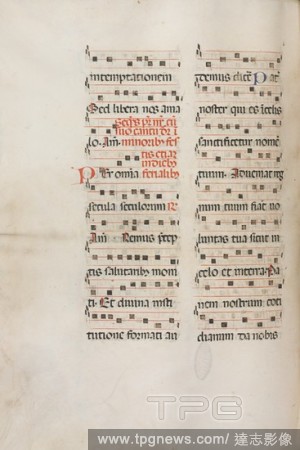 intemptationem
Sed libera nos ama
lo. Am̄.
Per omnia
secula seculorum R
Am̄. Oremus p̄cep
tis salutarib; moni
ti. Et divina insti
tutione formati au
demus dicē. Pat̄
noster qui es ī celis
sanctificetur nomē
tuum. Adveniat reg
num tuum fiat vo
luntas tua sicut in
celo et in terra. Pa
nem nostrum coti
dianum da nobis
TPG
www.tpgnews.com / 達志影像